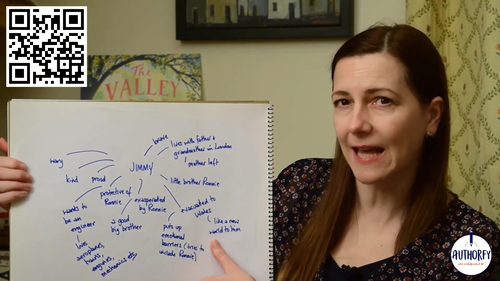 The
VALLEY
brave
lives with father &
grandmother in London
mother left
JIMMY
wary
kind
proud
little brother Ronnie
protective of
Ronnie
exasperated
by Ronnie
evacuated to
Wales
like a new
world to him
wants to
be an
engineer
a good
big brother
puts up
emotional
barriers (tries to
include Ronnie)
loves
aeroplanes,
trains,
engines,
mechanics etc.
AUTHORFY